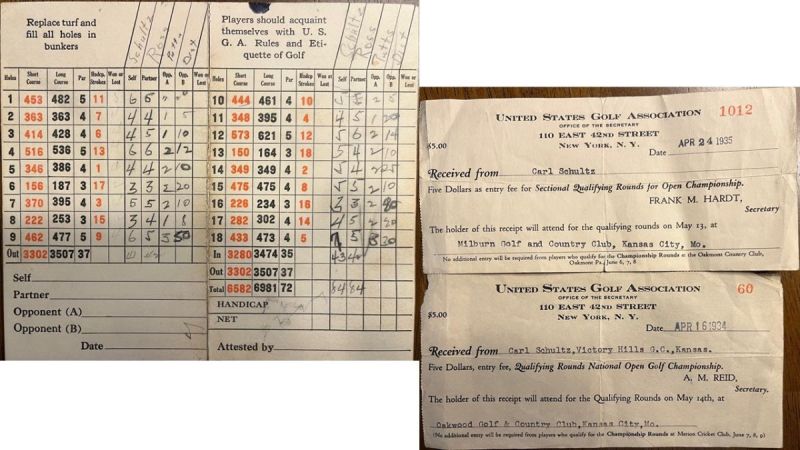 Replace turf and
fill all holes in
bunkers
Schultz
Ross
Putts
Dist
Holes Short Course Long Course Par Hndcp. Strokes Won or Lost Self Partner Opp. A Opp. B
1 453 482 5 11 6 5
2 363 363 4 7 4 4 1 5
3 414 428 4 6 4 5 1 10
4 516 536 5 13 6 6 2 12
5 346 386 4 1 4 4 2 10
6 156 187 3 17 3 3 2 20
7 370 395 4 3 5 5 2 10
8 222 253 3 15 3 4 1 8
9 462 477 5 9 6 5 3 50
Out 3302 3507 37
Self
Partner
Opponent (A)
Opponent (B)
Date
Players should acquaint
themselves with U. S.
G. A. Rules and Eti-
quette of Golf
Schultz
Ross
Putts
Dist
Holes Short Course Long Course Par Hndcp. Strokes Won or Lost Self Partner Opp. A Opp. B
10 444 461 4 10 5 5 2 5
11 348 395 4 4 4 5 1 20
12 573 621 5 12 5 6 2 14
13 150 164 3 18 5 4 2 10
14 349 349 4 2 5 4 2 25
15 475 475 4 8 5 5 2 10
16 226 234 3 16 3 3 2
17 282 302 4 14 4 5 2
18 433 473 4 5 5 3 30
In 3280 3474 35 43
Out 3302 3507 37
Total 6582 6981 72 84 84
HANDICAP
NET
Attested by
United States Golf Association
1012
OFFICE OF THE SECRETARY
110 EAST 42ND STREET
New York, N. Y.
$5.00
Date APR 24 1935
Received from Carl Schultz
Five Dollars as entry fee for Sectional Qualifying Rounds for Open Championship.
FRANK M. HARDT,
Secretary
The holder of this receipt will attend for the qualifying rounds on May 13, at
Milburn Golf and Country Club, Kansas City, Mo.
(No additional entry will be required from players who qualify for the Championship Rounds at the Oakmont Country Club,
Oakmont Pa., June 6, 7, 8
United States Golf Association
60
OFFICE OF THE SECRETARY
110 EAST 42ND STREET
New York, N. Y.
$5.00
Date APR 16 1934
Received from Carl Schultz,Victory Hills G.C.,Kansas.
Five Dollars, entry fee, Qualifying Rounds National Open Golf Championship.
A. M. REID,
Secretary.
The holder of this receipt will attend for the Qualifying Rounds on May 14th, at
Oakwood Golf & Country Club,Kansas City,Mo.
(No additional entry will be required from players who qualify for the Championship Rounds at Merion Cricket Club, June 7, 8, 9)